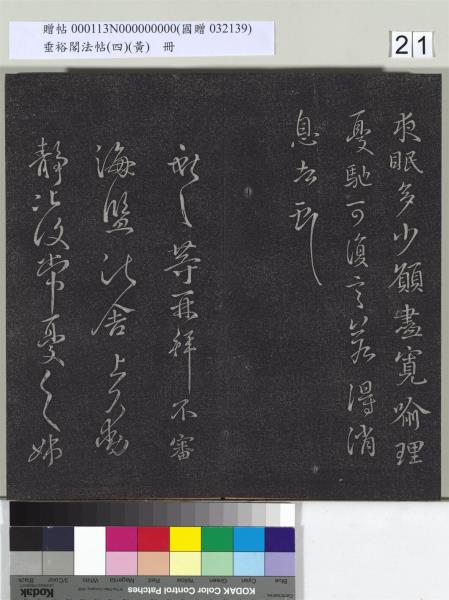 贈帖 000113N000000000(國贈 032139)
垂裕閣法帖(四)(黃) 冊
21
夜眠多少願盡寬喻理
憂馳可復言若得消
息古耶
獻之等再拜不審
海鹽諸舍上下動
靜比復常憂之姊
Blue
Cyan
Green
Yellow
Red
Magenta
White
3/Color
Black
Kodak
KODAK Color Control Patches